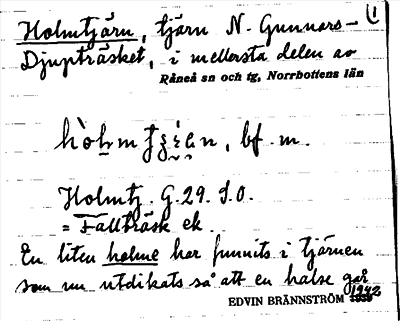 Holmtjärn, tjärn N. Gunnars- 1
Djupträsket, i mellersta delen av
Råneå sn och tg, Norrbottens län
bf. m.
Holmtj. G. 29. I.O.
= Fallträsk ek.
En liten holme har funnits i tjärnen
som nu utdikats så att en halse går
EDVIN BRÄNNSTRÖM 1942